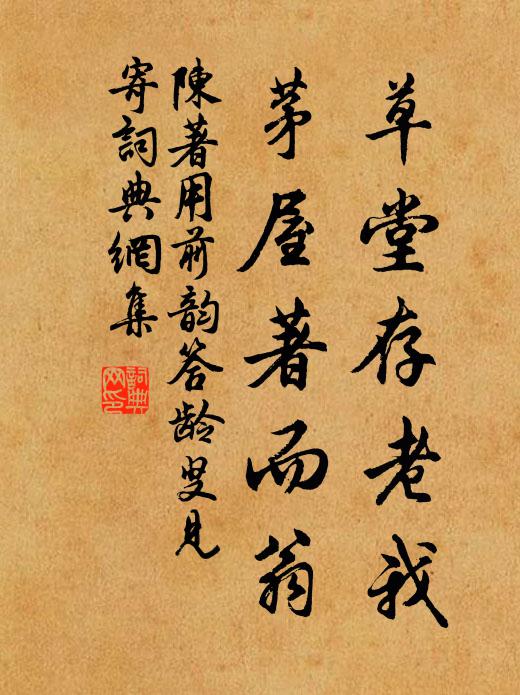 草堂存老我
茅屋著而翁
陳著用前韵答龄叟見
寄詞典網集
詞典网印